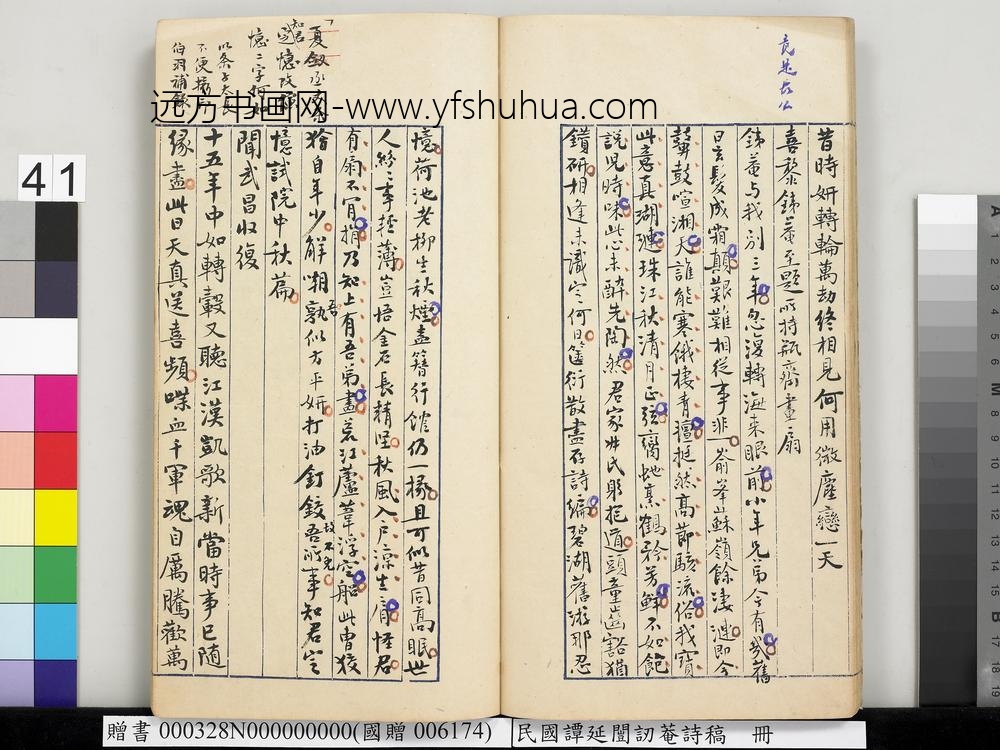 竟是長公
昔時妍轉輪萬劫終相見何用微塵戀一天
喜黎銕菴至題所持瓶齋畫扇
銕菴与我別三年忽復轉海來眼前少年兄弟今有幾舊
日玄髮成霜顛艱難相從事非一衡峯蘇嶺餘淒漣即今
鼙鼓喧湘天誰能寒餓棲青氈挺然高節駭流俗我寶
此意真瑚璉珠江秋清月正弦臠虵烹鶴矜芳鮮不如飽
說兒時味此心未醉先陶然君家丼氏躬抱道頭童齒豁猶
鑽研相逢未識定何日篋衍散盡存詩編碧湖舊游那忍
憶荷池老柳生秋煙盍簪行館仍一椽且可似昔同高眠世
人紛〻事輕薄豈悟金石長精堅秋風入戶涼生肩怪君
有扇不肎捐乃知上有吾弟畫蒼江蘆葦浮空船此曹狡
獪自年少解嘲孰似方平妍打油釘鉸吾所事知君定
吾
故不免
憶試院中秋篇
聞武昌收復
十五年中如轉轂又聽江漢凱歌新當時事已隨
緣盡此日天真送喜頻喋血千軍魂自厲騰歡萬
知君
定憶改
憶二字
以条子太長
不便
伯羽補錄
远方书画网-www.yfshuhua.com
41
贈書 000328N000000000(國贈 006174)
民國譚延闓訒菴詩稿 冊